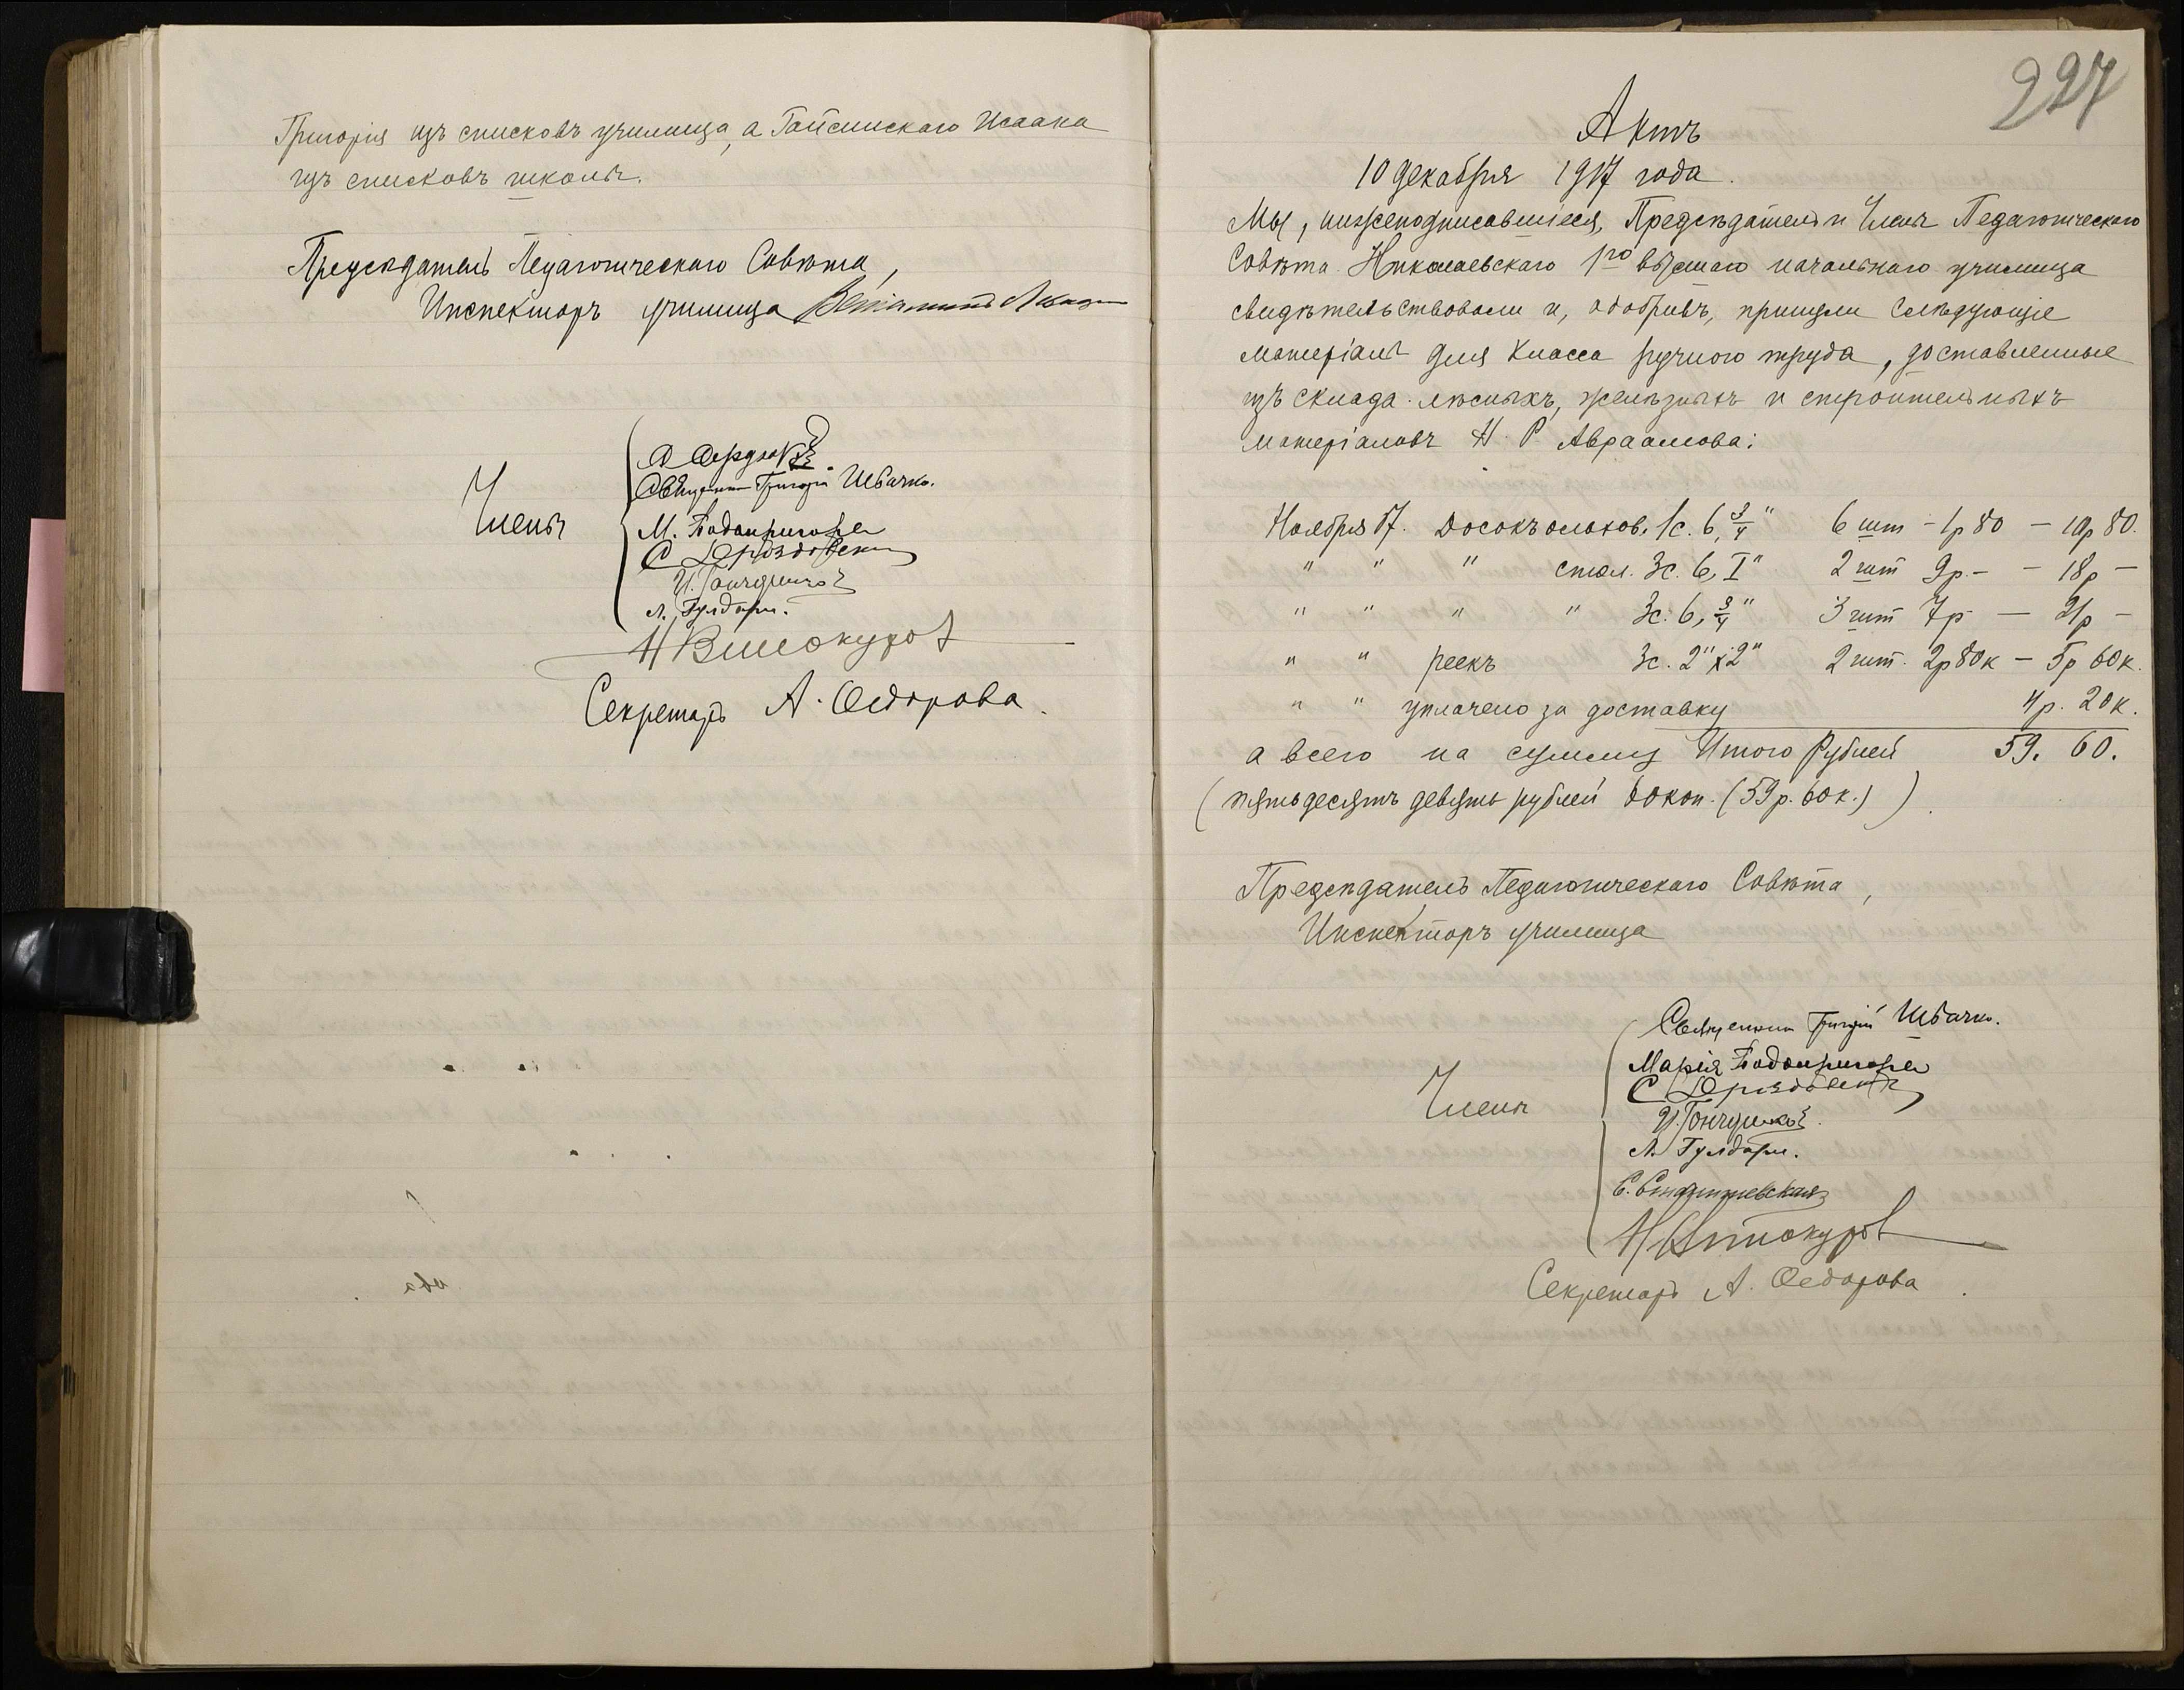 Григорія изъ списковъ училища, а Гайсинскаго Исаака
изъ списковъ школы.
Предсѣдатель Педагогическаго Совѣта,
Инспекторъ училища
Члены
А Сердюкъ.
Священникъ Григорій Швачко.
М. Подопригора
С Дроздовскій
И. Гончаренко
Л. Гулдари.
Н Винокуров
Секретарь А. Федорова.
227
Актъ
10 декабря 1917 года.
Мы, нижеподписавшіеся, Предсѣдатель и Члены Педагогическаго
Совѣта Николаевскаго 1го высшаго начальнаго училища
свидѣтельствовали и, одобривъ, приняли слѣдующіе
матеріалы для класса ручного труда, доставленные
изъ склада лѣсныхъ, желѣзныхъ и строительныхъ
матеріаловъ Н. Р. Авраамова:
Ноября 17. Досокъ ольхов. 1с. 6, 3/4" 6 шт - 1р 80 — 10р 80.
" " " стол. 3с. 6, I" 2 шт 9р. — — 18р —
" " " " 3с. 6, 3/4" 3 шт 7р — 21р —
" " реекъ 3с. 2" x 2" 2 шт. 2р 80к — 5р 60к.
" " уплачено за доставку 4р. 20к.
а всего на сумму Итого Рублей 59. 60.
(пятьдесятъ девять рублей 60 коп. (59р. 60к.)).
Предсѣдатель Педагогическаго Совѣта,
Инспекторъ училища
Члены
Священникъ Григорій Швачко.
Марія Подопригора
С Дроздовскій
И. Гончаренко.
Л. Гулдари.
Н Винокуров
Секретарь А. Федорова.